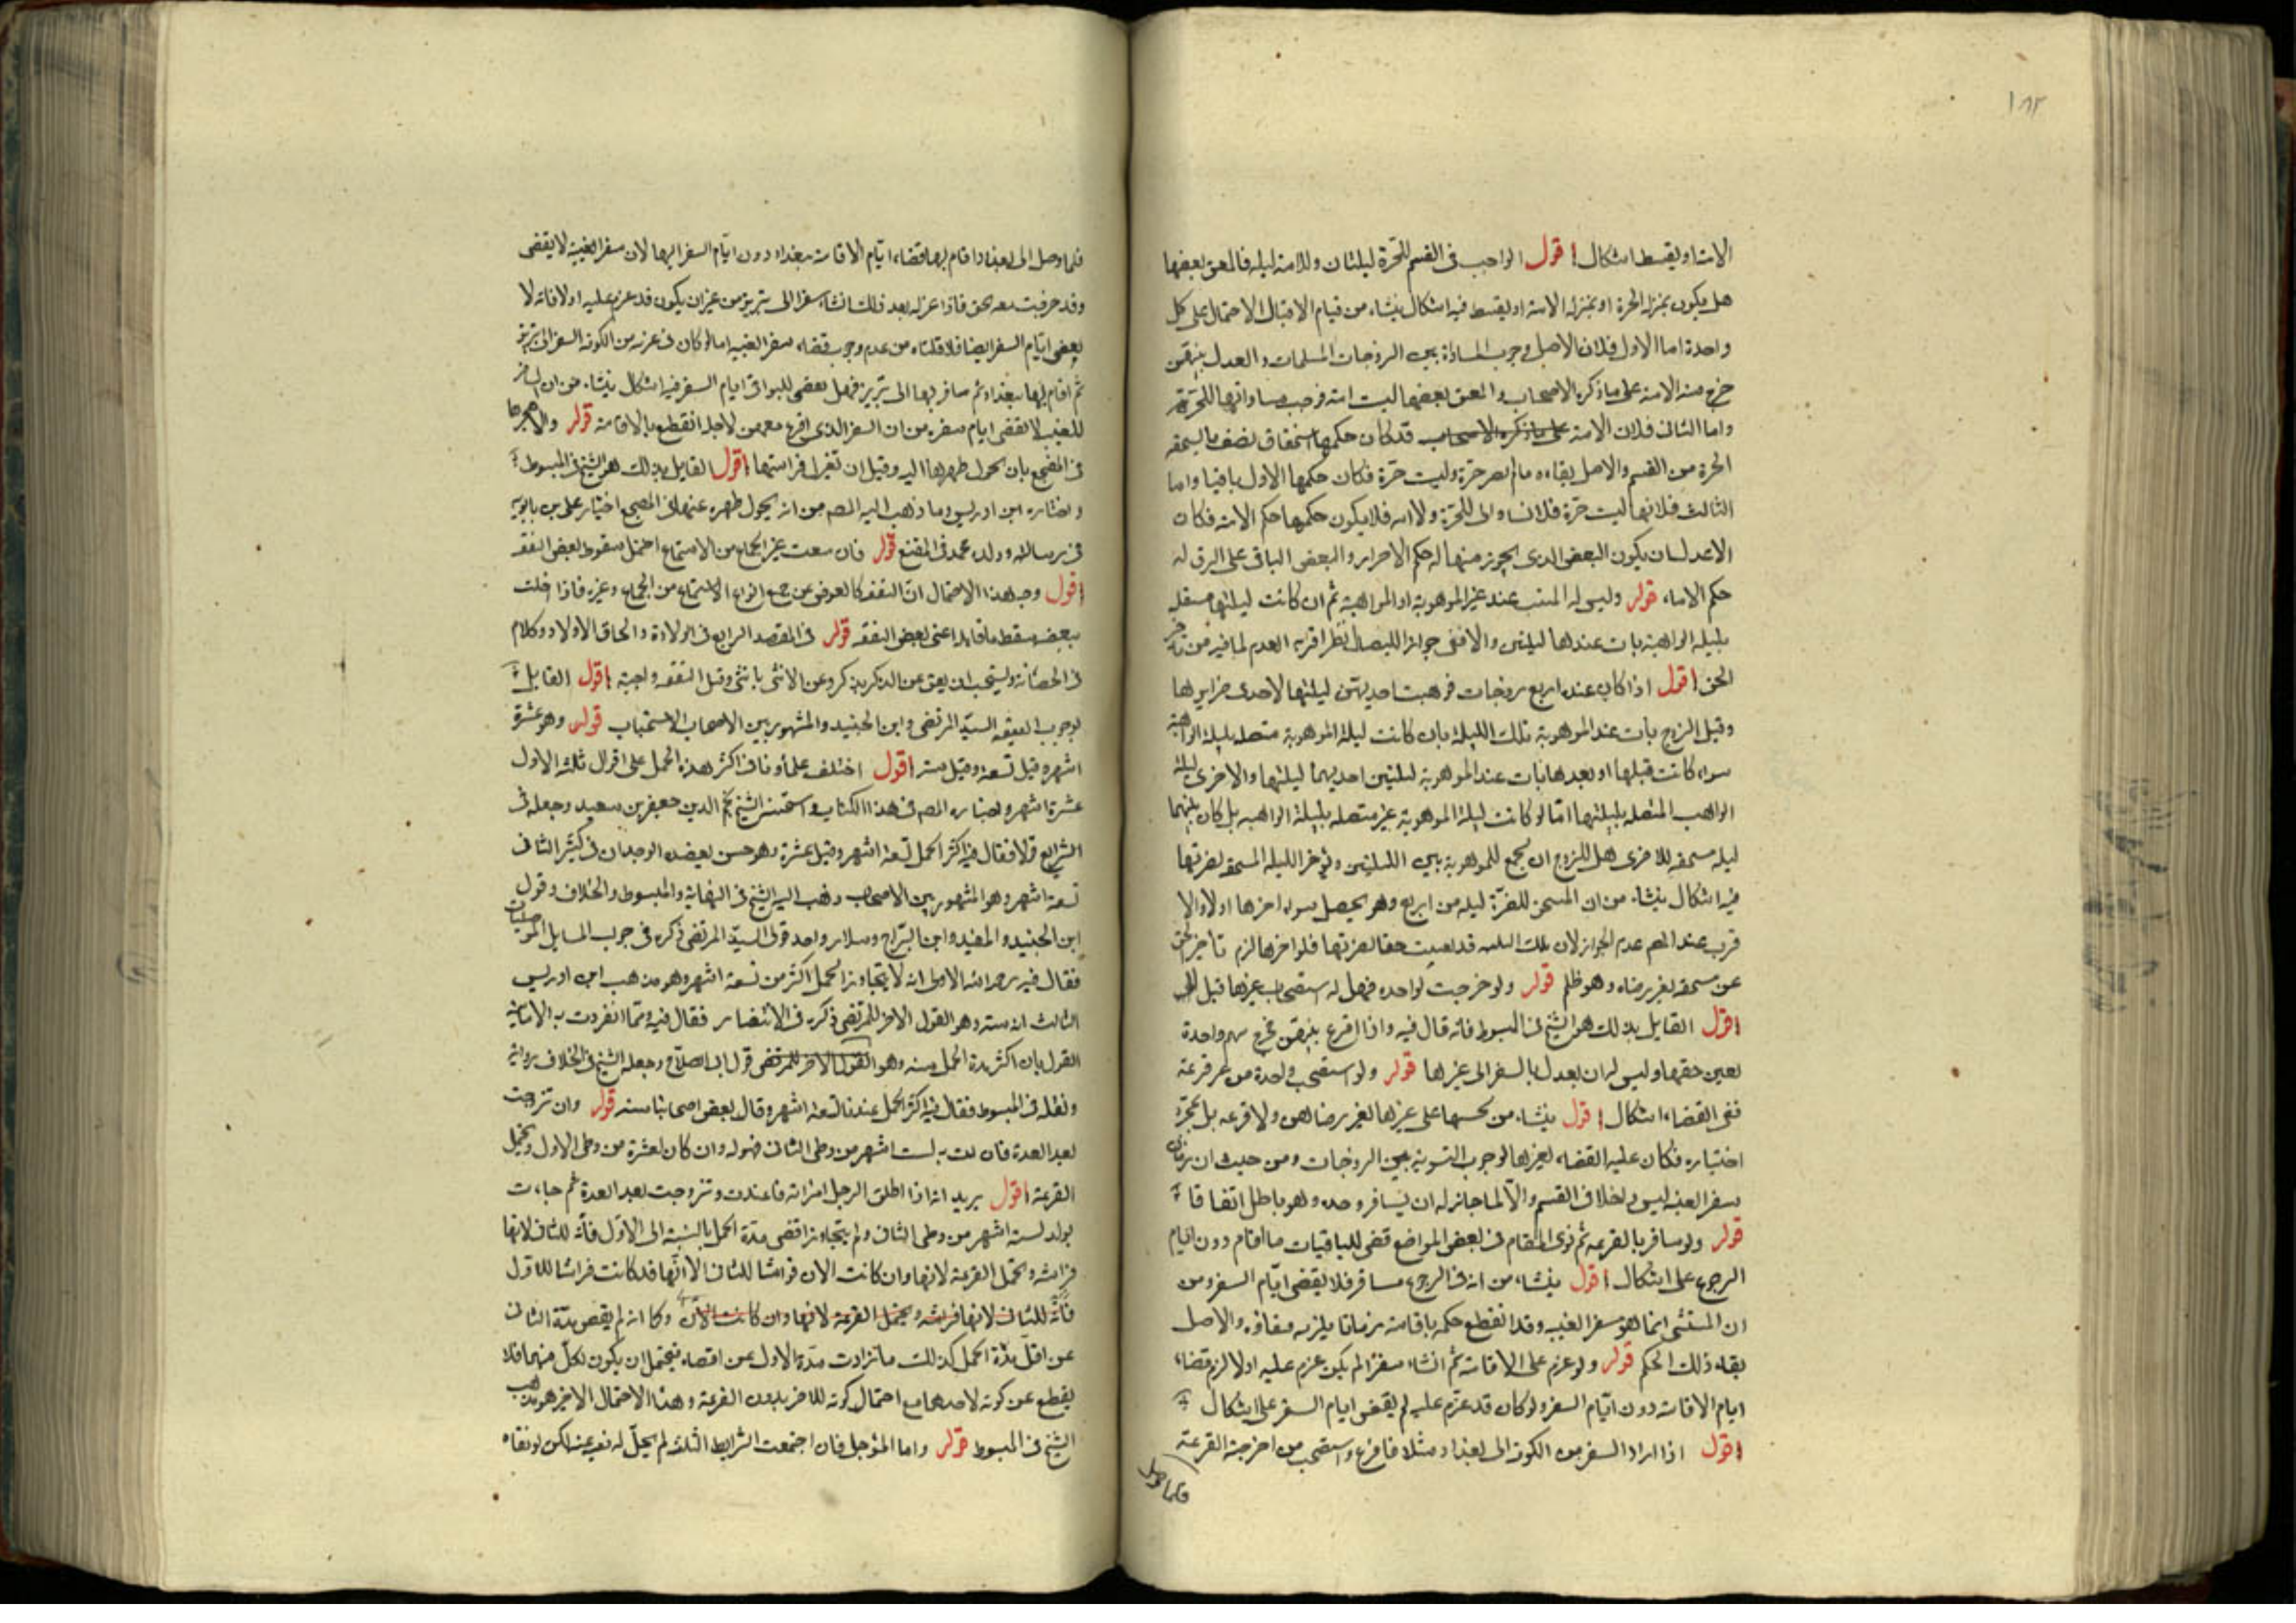 ١٨٢
الامة او يقسط اشكال اقول الواجب فى القسم للحرة ليلتان وللامة ليلة فالمعتق بعضها
هل يكون بمنزلة الحرة او بمنزلة الامة او يقسط فيه اشكال ينشاء من قيام الاحتمال على كل
واحدة اما الاول فلان الاصل وجوب المساواة بين الزوجات المسلمات والعدل بينهن
خرج منه الامة على ما ذكره الاصحاب والمعتق بعضها ليست امة فوجب مساواتها للحرة
واما الثانى فلان الامة على ما ذكره الاصحاب قد كان حكمها استحقاق نصف ما يستحقه
الحرة من القسم والاصل بقاءه ما لم يصر حرة وليست حرة فكان حكمها الاول باقيا واما
الثالث فلانها ليست حرة فلا تساوى للحرة ولا امة فلا يكون حكمها حكم الامة فكان
الاعدل ان يكون البعض الذى تحرر منها له حكم الاحرار والبعض الباقى على الرق له
حكم الاماء قوله وليس له المبيت عند غير الموهوبة او الواهبة ثم ان كانت ليلتها متصلة
بليلة الواهبة بات عندها ليلتين والا ففى جواز الايصال نظر اقربه العدم لما فيه من تاخير
الحق اقول اذا كان عنده اربع زوجات فوهبت احديهن ليلتها لاحدى ضرايرها
وقبل الزوج بات عند الموهوبة تلك الليلة بان كانت ليلة الموهوبة متصلة بليلة الواهبة
سواء كانت قبلها او بعدها بات عند الموهوبة ليلتين احديهما ليلتها والاخرى ليلة
الواهب المتصلة بليلتها اما لو كانت ليلة الموهوبة غير متصلة بليلة الواهبة بل كان بينهما
ليلة مستحقة للاخرى هل للزوج ان يجمع للموهوبة بين الليلتين ويؤخر الليلة المستحقة لضرتها
فيه اشكال ينشاء من ان المستحق للضرة ليلة من اربع وهو يحصل سواء اخرها او لا والا
قرب عند المصم عدم الجواز لان تلك الليلة قد تعينت حقا لضرتها فلو اخرها لزم تاخير الحق
عن مستحقه بغير رضاه وهو ظلم قوله ولو خرجت لواحدة فهل له استصحاب غيرها قيل لا
اقول القايل بذلك هو الشيخ فى المبسوط فانه قال فيه واذا اقرع بينهن فخرج سهم واحدة
تعين حقها وليس له ان يعدل بالسفر الى غيرها قوله ولو استصحب واحدة من غير قرعة
ففى القضاء اشكال اقول ينشاء من تخصيصها على غيرها بغير رضاهن ولا قرعة بل بمجرد
اختياره فكان عليه القضاء لغيرها لوجوب التسوية بين الزوجات ومن حيث ان زمان
سفر الغيبة ليس داخلا فى القسم والا لما جاز له ان يسافر وحده وهو باطل اتفاقا
قوله ولو سافر بالقرعة ثم نوى المقام فى بعض المواضع قضى للباقيات ما اقام دون ايام
الرجوع على اشكال اقول ينشاء من انه فى الرجوع مسافر فلا يقضى ايام السفر ومن
ان المستثنى انما هو سفر الغيبة وقد انقطع حكمه باقامته زمانا يلزمه قضاؤه والاصل
بقاء ذلك الحكم قوله ولو عزم على الاقامة ثم انشاء سفرا لم يكن عزم عليه اولا لزم قضاء
ايام الاقامة دون ايام السفر ولو كان قد عزم عليه لم يقض ايام السفر على اشكال
اقول اذا اراد السفر من الكوفة الى بغداد مثلا فاقرع واستصحب من اخرجته القرعة
فلما وصل
فلما وصل الى بغداد اقام بها قضاء ايام الاقامة ببغداد دون ايام السفر اليها لان سفر الغيبة لا يقضى
وقد خرجت معه بحق فاذا عزله بعد ذلك انشاء سفر الى تبريز من غير ان يكون قد عزم عليه اولا فانه لا
يقضى ايام السفر ايضا فلا قلناه من عدم وجوب قضاء سفر الغيبة اما لو كان فى عزمه من الكوفة السفر الى تبريز
ثم اقام بها ببغداد ثم سافر بها الى تبريز فهل يقضى للبواقى ايام السفر فيه اشكال ينشاء من ان المسافر
للغيبة لا يقضى ايام سفره من ان السفر الذى اقرع معهن لاجله انقطع بالاقامة قوله والاهجرها
فى المضجع بان يحول ظهره اليه وقيل ان تعتزل فراشها اقول القايل بذلك هو الشيخ فى المبسوط
واختاره ابن ادريس وما ذهب اليه المصم من انه يحول ظهره عنها فى المضجع اختيار على بن بابويه
فى رسالته وولده محمد فى المقنع قوله فان منعت غير الجماع من الاستمتاع احتمل سقوط بعض النفقة
اقول وجه هذا الاحتمال ان النفقة كالعوض عن جميع انواع الاستمتاع من الجماع وغيره فاذا اخلت
ببعضه سقط ما قابله اعنى بعض النفقة قوله فى المقصد الرابع فى الولادة والحاق الاولاد وكلام
فى الحضانة ويستحب ان يعق عن الذكر بذكر وعن الانثى بانثى وقيل العقيقة واجبة اقول القايل
بوجوب العقيقة السيد المرتضى وابن الجنيد والمشهور بين الاصحاب الاستحباب قوله وهو عشرة
اشهر وقيل تسعة وقيل سنة اقول اختلف علماؤنا فى اكثر هذه الحمل على اقوال ثلثة الاول
عشرة اشهر واختاره المصم فى هذا الكتاب واستحسنه الشيخ نجم الدين جعفر بن سعيد وجعله فى
الشرايع قولا فقال فيه اكثر الحمل تسعة اشهر وقيل عشرة وهو حسن يعضده الوجدان فى كثير الثانى
تسعة اشهر وهو المشهور بين الاصحاب وذهب اليه الشيخ فى النهاية والمبسوط والخلاف وقول
ابن الجنيد والمفيد وابن البراج وسلار واحد قولى السيد المرتضى ذكره فى جواب المسايل الموصليات
فقال فيه رحمة الله الاولى انه لا يتجاوز الحمل اكثر من تسعة اشهر وهو مذهب ابن ادريس
الثالث انه سنة وهو القول الاخر للمرتضى ذكره فى الانتصار فقال فيه ومما انفردت به الامامية
القول بان اكثر مدة الحمل سنة وهو القول الاخر للمرتضى قول ابى الصلاح وجعله الشيخ فى الخلاف رواية
ونقله فى المبسوط فقال فيه اكثر الحمل عندنا تسعة اشهر وقال بعض اصحابنا سنة قوله وان تزوجت
بعد العدة فان اتت به لستة اشهر من وطى الثانى فهو له وان كان لعشرة من وطى الاول ويحتمل
القرعة اقول يريد انه اذا اطلق الرجل امراته فاعتدت وتزوجت بعد العدة ثم جاءت
بولد لستة اشهر من وطى الثانى ولم يتجاوز اقصى مدة الحمل بالنسبة الى الاول فانه للثانى لانها
فراشه ويحتمل القرعة لانها وان كانت الان فراشا للثانى الا انها قد كانت فراشا للاول
فانه للثانى لانها فراشه ويحتمل القرعة لانها وان كانت الان وكما انه لم ينقص مدة الثانى
عن اقل مدة الحمل كذلك ما زادت مدة الاول عن اقصاه فيحتمل ان يكون لكل منهما فلا
يقطع عن كونه لاحدهما مع احتمال كونه للاخر بدون القرعة وهذا الاحتمال الاخير هو مذهب
الشيخ فى المبسوط قوله واما المؤجل فان اجتمعت الشرايط الثلثة لم يحل له نفيه عنه لكن لو نفاه